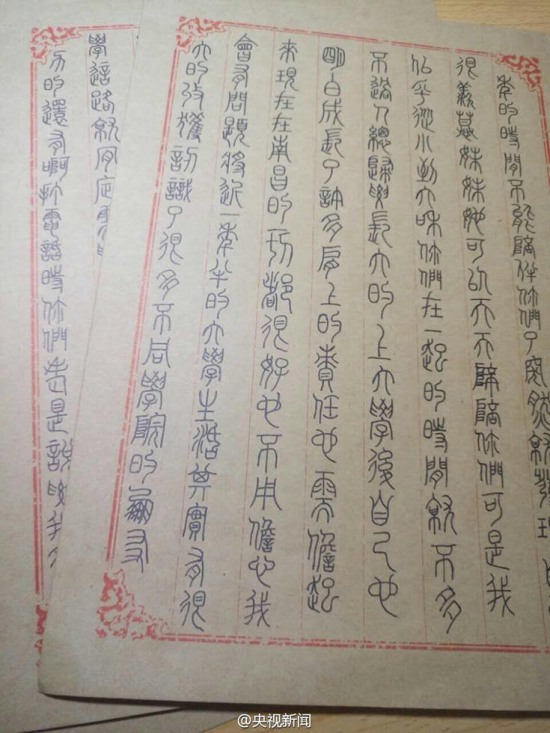 年的時間不能陪伴你們了突然就發現
很羨慕妹妹她可以天天陪你們可是我
似乎從小到大和你們在一起的時間就不多
不過人總歸要長大的上大學後自己也
明白成長了許多肩上的責任也需擔起
來現在在南昌的一切都很好也不用擔心我
會有問題將近一年半的大學生活其實有很
大的收獲認識了很多不同學院的朋友
學這路就
方的還有啊打電話時你們老是說要我
@央视新闻